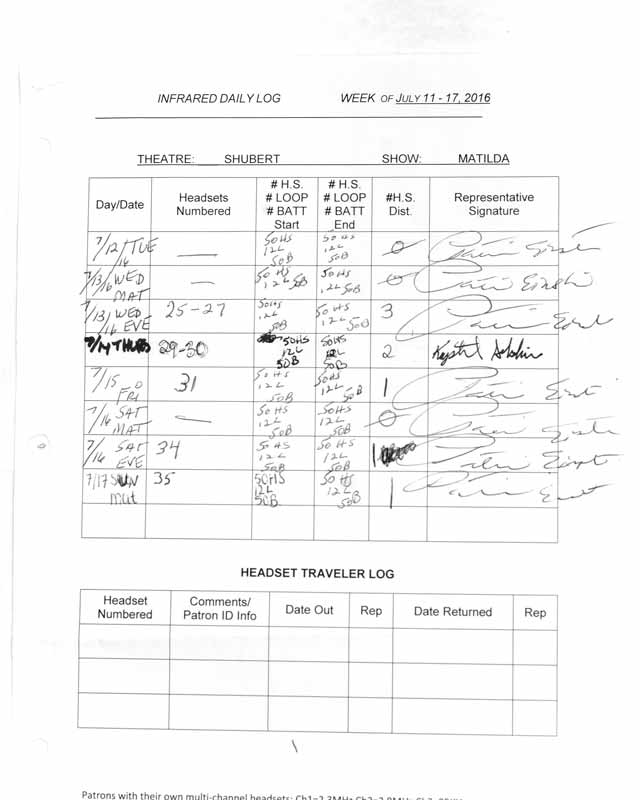 INFRARED DAILY LOG WEEK OF JULY 11 - 17, 2016
THEATRE: SHUBERT SHOW: MATILDA
Day/Date
Headsets
Numbered
# H.S.
# LOOP
# BATT
Start
# H.S.
# LOOP
# BATT
End
#H.S.
Dist.
Representative
Signature
7/12/16 TUE — 50HS 12L 50B 50HS 12L 50B 0
7/13/16 WED MAT — 50HS 12L 50B 50HS 12L 50B 0
7/13/16 WED EVE 25-27 50HS 12L 50B 50HS 12L 50B 3
7/14 THURS 29-30 50HS 12L 50B 50HS 12L 50B 2
7/15 FRI 31 50HS 12L 50B 50HS 12L 50B 1
7/16 SAT MAT — 50HS 12L 50B 50HS 12L 50B 0
7/16 SAT EVE 34 50HS 12L 50B 50HS 12L 50B 1
7/17 SUN mat 35 50HS 12L 50B 50HS 12L 50B 1
HEADSET TRAVELER LOG
Headset
Numbered
Comments/
Patron ID Info
Date Out
Rep
Date Returned
Rep
Patrons with their own multi-channel headsets: Ch1=2.3MHz